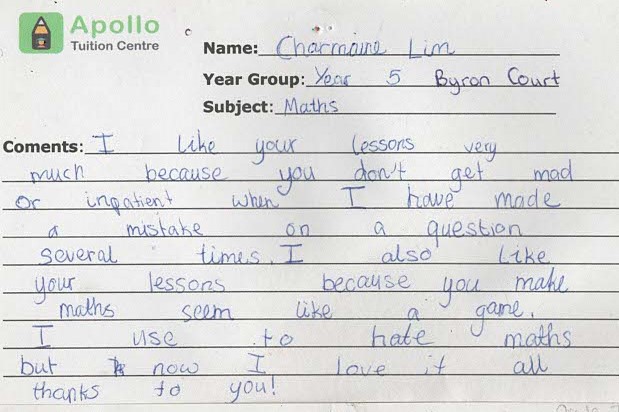 Apollo
Tuition Centre
Name: Charmaine Lim
Year Group: Year 5 Byron Court
Subject: Maths
Coments: I like your lessons very
much because you don't get mad
or inpatient when I have made
a mistake on a question
several times. I also like
your lessons because you make
maths seem like a game.
I use to hate maths
but now I love it all
thanks to you!